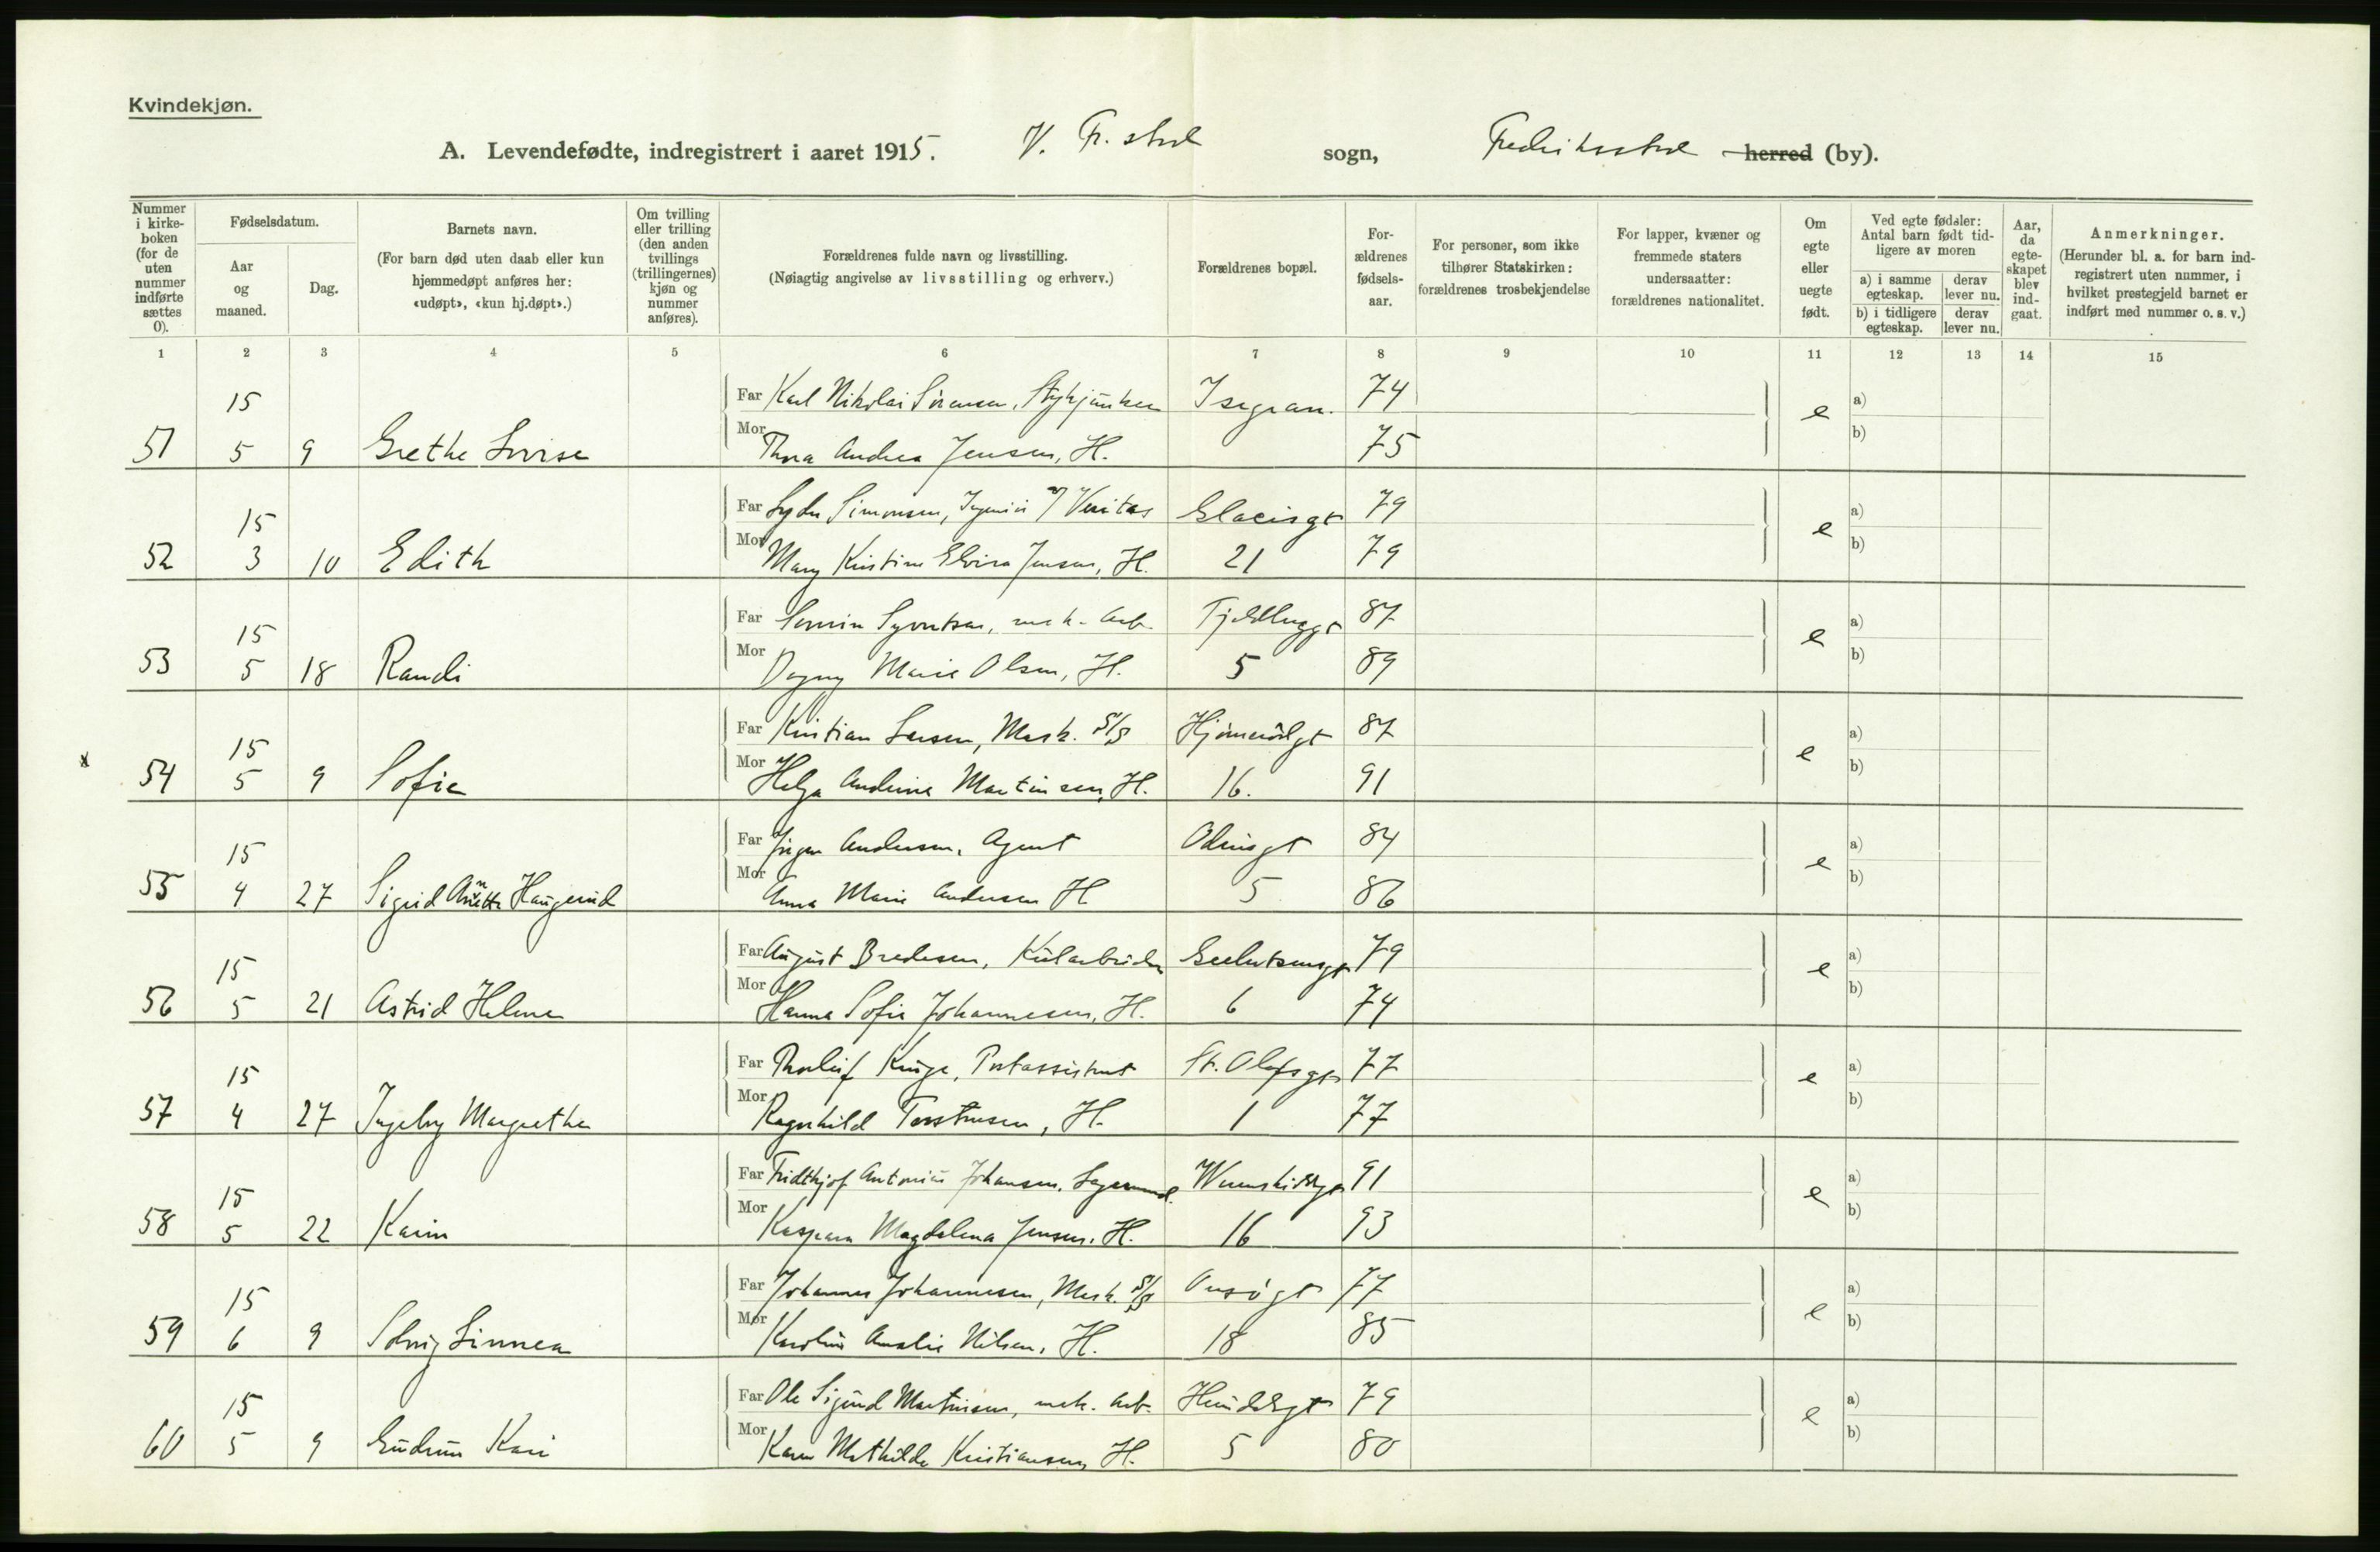 Kvindekjøn.
A. Levendefødte, indregistrert i aaret 1915. V. Fr.stad sogn, Fredriksstad herred (by).
Nummer i kirkeboken (for de uten nummer indførte sættes 0).
Fødselsdatum.
Aar og maaned.
Dag.
Barnets navn.
(For barn død uten daab eller kun hjemmedøpt anføres her: «udøpt», «kun hj.døpt».)
Om tvilling eller trilling (den anden tvillings (trillingernes) kjøn og nummer anføres).
Forældrenes fulde navn og livsstilling.
(Nøiagtig angivelse av livsstilling og erhverv.)
Forældrenes bopæl.
Forældrenes fødselsaar.
For personer, som ikke tilhører Statskirken: forældrenes trosbekjendelse
For lapper, kvæner og fremmede staters undersaatter: forældrenes nationalitet.
Om egte eller uegte født.
Ved egte fødsler: Antal barn født tidligere av moren
a) i samme egteskap. derav lever nu.
b) i tidligere egteskap. derav lever nu.
Aar, da egteskapet blev indgaat.
Anmerkninger.
(Herunder bl. a. for barn indregistrert uten nummer, i hvilket prestegjeld barnet er indført med nummer o. s. v.)
1 2 3 4 5 6 7 8 9 10 11 12 13 14 15
15 Far Karl Nikolai Sörensen, Isegran. 74 e a)
51 5 9 Grethe Lovise Mor Thora Andrea Jensen, H. 75 b)
15 Far Simonsen, Ingeniör Veritas Glacisgt 79 e a)
52 3 10 Edith Mor Mary Kristine Elvira Jensen, H. 21 79 b)
15 Far Syvertsen, mek. Arb. 87 e a)
53 5 18 Randi Mor Dagny Marie Olsen, H. 5 89 b)
15 Far Kristian Larsen, Mask. 87 e a)
x 54 5 9 Sofie Mor Helga Andrine Martinsen, H. 16. 91 b)
15 Far Jörgen Andersen, Agent Odinsgt 84 e a)
55 4 27 Sigrid Anette Haugerud Mor Anna Marie Andersen H 5 86 b)
15 Far August Bredesen, 79 e a)
56 5 21 Astrid Helene Mor Hanna Sofie Johannesen, H. 6 74 b)
15 Far Thorleif St. Olafsgt 77 e a)
57 4 27 Ingeborg Margrethe Mor Ragnhild Torstensen, H. 1 77 b)
15 Far Fridthjof Antonius Johansen, 91 e a)
58 5 22 Karin Mor Kaspara Magdalena Jensen, H. 16 93 b)
15 Far Johannes Johannesen, Mask. Onsögt 77 e a)
59 6 9 Solveig Linnea Mor Karoline Amalie Nilsen, H. 18 85 b)
15 Far Ole Sigurd Martinsen, mek. Arb. 79 e a)
60 5 9 Gudrun Kari Mor Karen Mathilde Kristiansen, H. 5 80 b)